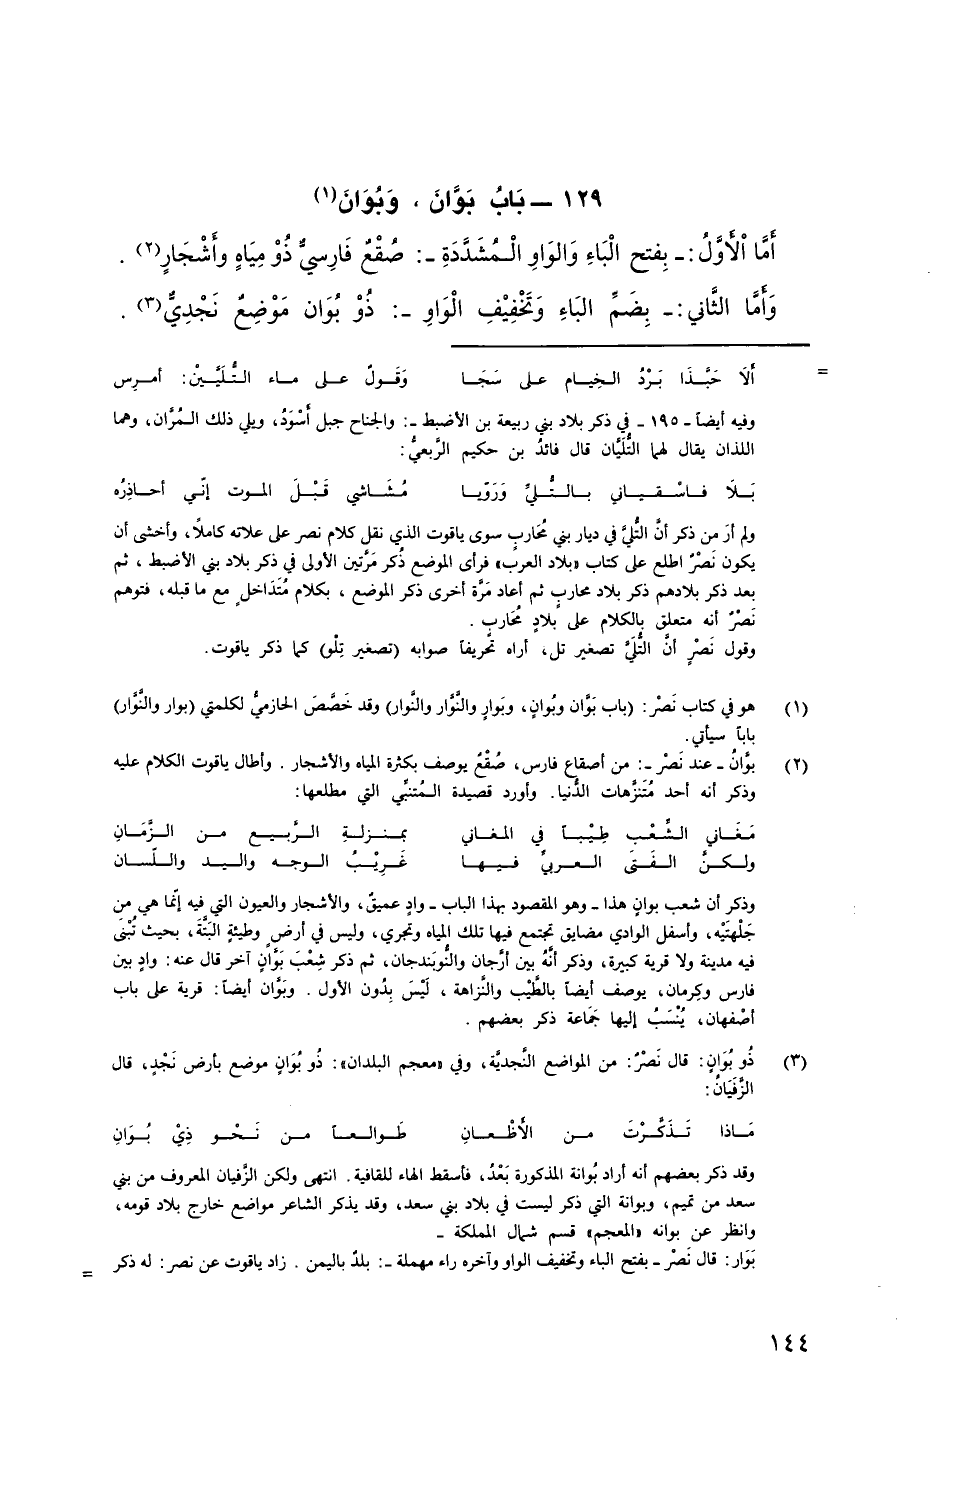 ١٢٩ ــ بَابُ بَوَّانَ ، وَبُوَانَ(١)
أَمَّا الْأَوَّلُ :ـ بِفتح الْبَاءِ وَالوَاوِ الْـمُشَدَّدَةِ ـ: صُقْعٌ فَارِسيٌّ ذُوْ مِيَاهٍ وأَشْجَارٍ(٢) .
وَأَمَّا الثَّاني :ـ بِضَمِّ البَاءِ وَتَخْفِيْفِ الْوَاوِ ـ: ذُوْ بُوَان مَوْضِعٌ نَجْدِيٌّ(٣) .
= أَلَا حَبَّذَا بَرْدُ الخِيـام على سَجَـا وَقَـولٌ على مـاء التُّلَيَّـيْنْ: أمـرِس
وفيه أيضاً ـ ١٩٥ ـ في ذكر بلاد بني ربيعة بن الأضبط ـ: والجناح جبل أَسْوَدُ، ويلي ذلك الـمُرَّان، وهما
اللذان يقال لهما التُّلَيَّان قال فائدُ بن حكيم الرَّبعيُّ :
بَـلَا فـاسْـقـيـاني بـالـتُّـليِّ وَرَوِّيـا مُـشَـاشي قَـبْـلَ المـوت إنّـي أحـاذِرُه
ولم أرَ من ذكر أنَّ التُّليَّ في ديار بني مُحَارب سوى ياقوت الذي نقل كلام نصر على علاته كاملاً، وأخشى أن
يكون نَصْرٌ اطلع على كتاب «بلاد العرب» فرأى الموضع ذُكر مَرَّتين الأولى في ذكر بلاد بني الأضبط ، ثم
بعد ذكر بلادهم ذكر بلاد محارب ثم أعاد مَرَّة أخرى ذكر الموضع ، بكلام مُتَدَاخل مع ما قبله، فتوهم
نَصْرٌ أنه متعلق بالكلام على بلاد مُحَارب .
وقول نَصْرٍ أنَّ التُّلَيَّ تصغير تل، أراه تحريفاً صوابه (تصغير تِلْو) كما ذكر ياقوت.
(١) هو في كتاب نَصْر : (باب بَوَّان وبُوانٍ، وبَوارٍ والنَّوَّار والنَّوار) وقد خَصَّصَ الحازميُّ لكلمتي (بوار والنَّوَّار)
باباً سيأتي.
(٢) بوَّانُ ـ عند نَصْر ـ: من أصقاع فارس، صُقْعٌ يوصف بكثرة المياه والأشجار . وأطال ياقوت الكلام عليه
وذكر أنه أحد مُتَنزَّهات الدُّنيا. وأورد قصيدة الـمُتنبِّي التي مطلعها:
مَـغَـاني الـشَّـعْـب طِـيْـبـاً في المغـاني بمـنـزلـةِ الـرَّبـيـع مـن الـزَّمَـانِ
ولـكـنَّ الـفَـتَى الـعـربيَّ فـيـهـا غَـرِيْـبُ الـوجـه والـيـد والـلِّـسـان
وذكر أن شعب بوانٍ هذا ـ وهو المقصود بهذا الباب ـ وادٍ عميقٌ، والأشجار والعيون التي فيه إنّما هي من
جَلْهَتَيْه، وأسفل الوادي مضايق تجتمع فيها تلك المياه وتجري، وليس في أرض وطيئةٍ البَتَّة، بحيث تُبْنَى
فيه مدينة ولا قرية كبيرة، وذكر أنَّهُ بين أرَّجان والنُّوبَندجان، ثم ذكر شِعْبَ بَوَّانٍ آخر قال عنه: وادٍ بين
فارس وكِرمان، يوصف أيضاً بالطِّيْب والنَّزاهة ، لَيْسَ بِدُون الأول . وبَوَّان أيضاً: قرية على باب
أصْفهان، يُنْسَبُ إليها جَمَاعة ذكر بعضهم .
(٣) ذُو بُوَانٍ: قال نَصْرٌ: من المواضع النَّجديَّة، وفي «معجم البلدان»: ذُو بُوَانٍ موضع بأرض نَجْدٍ، قال
الزَّفَيَانُ:
مَـاذا تَـذَكَّـرْتَ مـن الأَظْـعـان طَـوالـعـاً مـن نَـحْـو ذِيْ بُـوَانِ
وقد ذكر بعضهم أنه أراد بُوانة المذكورة بَعْدُ، فأسقط الهاء للقافية. انتهى ولكن الزَّفيان المعروف من بني
سعد من تميم، وبوانة التي ذكر ليست في بلاد بني سعد، وقد يذكر الشاعر مواضع خارج بلاد قومه،
وانظر عن بوانه «المعجم» قسم شمال المملكة ـ
بَوَار: قال نَصْرٌ ـ بفتح الباء وتخفيف الواو وآخره راء مهملة ـ: بلدٌ باليمن . زاد ياقوت عن نصر: له ذكر =
١٤٤